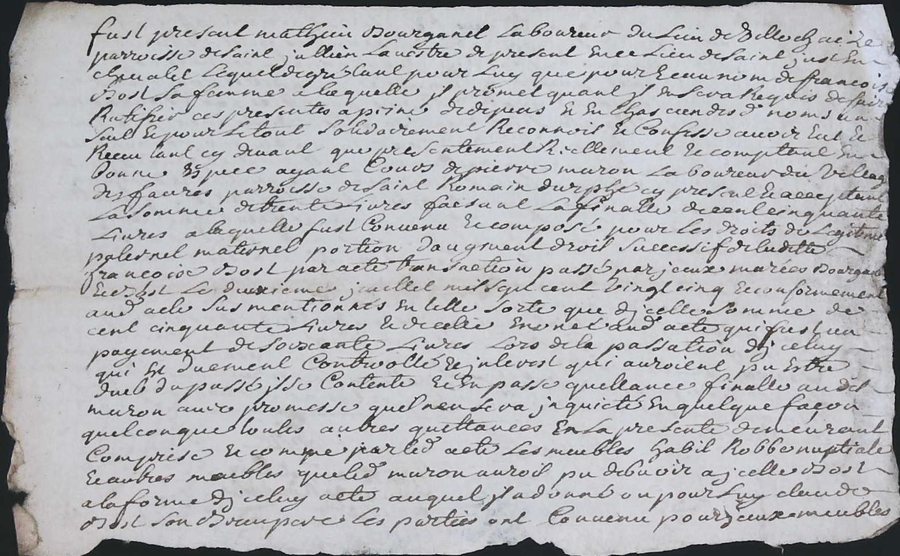 fust present mathieu Bourganel Laboureur du Lieu de Villechaize
parroisse de Saint jullien La vestre de present En ce Lieu de Saint just En
chevalet Lequel de gré tant pour Luy que pour Et au nom de francoise
Bost Sa famme a laquelle jl promet quant jl En Sera Requis de faire
Ratiffier ces presentes a peine de depens Et En tous cas en des d. noms un
Seul Et pour Le tout Solidairement Reconnoit Et Confesse avoir Eut Et
Receu tant cy devant que presentement Reellement Et comptant En
bonne Espece ayant Cours de pierre muron Laboureur du Village
des faures parroisse de Saint Romain durphe cy present Et acceptant
La Somme de trente Livres faisant La finalle de cent cinquante
Livres a laquelle fust Convenu Et composé pour Les droits de Legitime
paternel maternel portion daugment droit Successif de laditte
francoise Bost par acte transaction passé par jceux mariées Bourganel
Et Bost Le deuxieme juillet mil Sept cent vingt cinq Et conformement
aud. acte Sus mentionnés En telle Sorte que djcelle Somme de
cent cinquante Livres Et dicelle En net aud. acte qui fust un
payement de Soixante Livres Lors de la passation djceluy
qui Est duement Controllé Et jnterest qui auroient pu Estre
dueb du passé jl Se Contente Et En passe quellance finalle audit
muron avec promesse quel nen Sera jnquieté En quelque facon
quelconque toutes autres quittances En La presente demeurant
Comprise Et comme par led. acte Les meubles habit Robbe nuptialle
Et autres meubles que led. muron auroit pu debvoir a jcelle Bost
a la forme djceluy acte auquel jl a donné ou pour Luy claude
Bost Son Beaupere Les parties ont Convenu pour jceux meubles